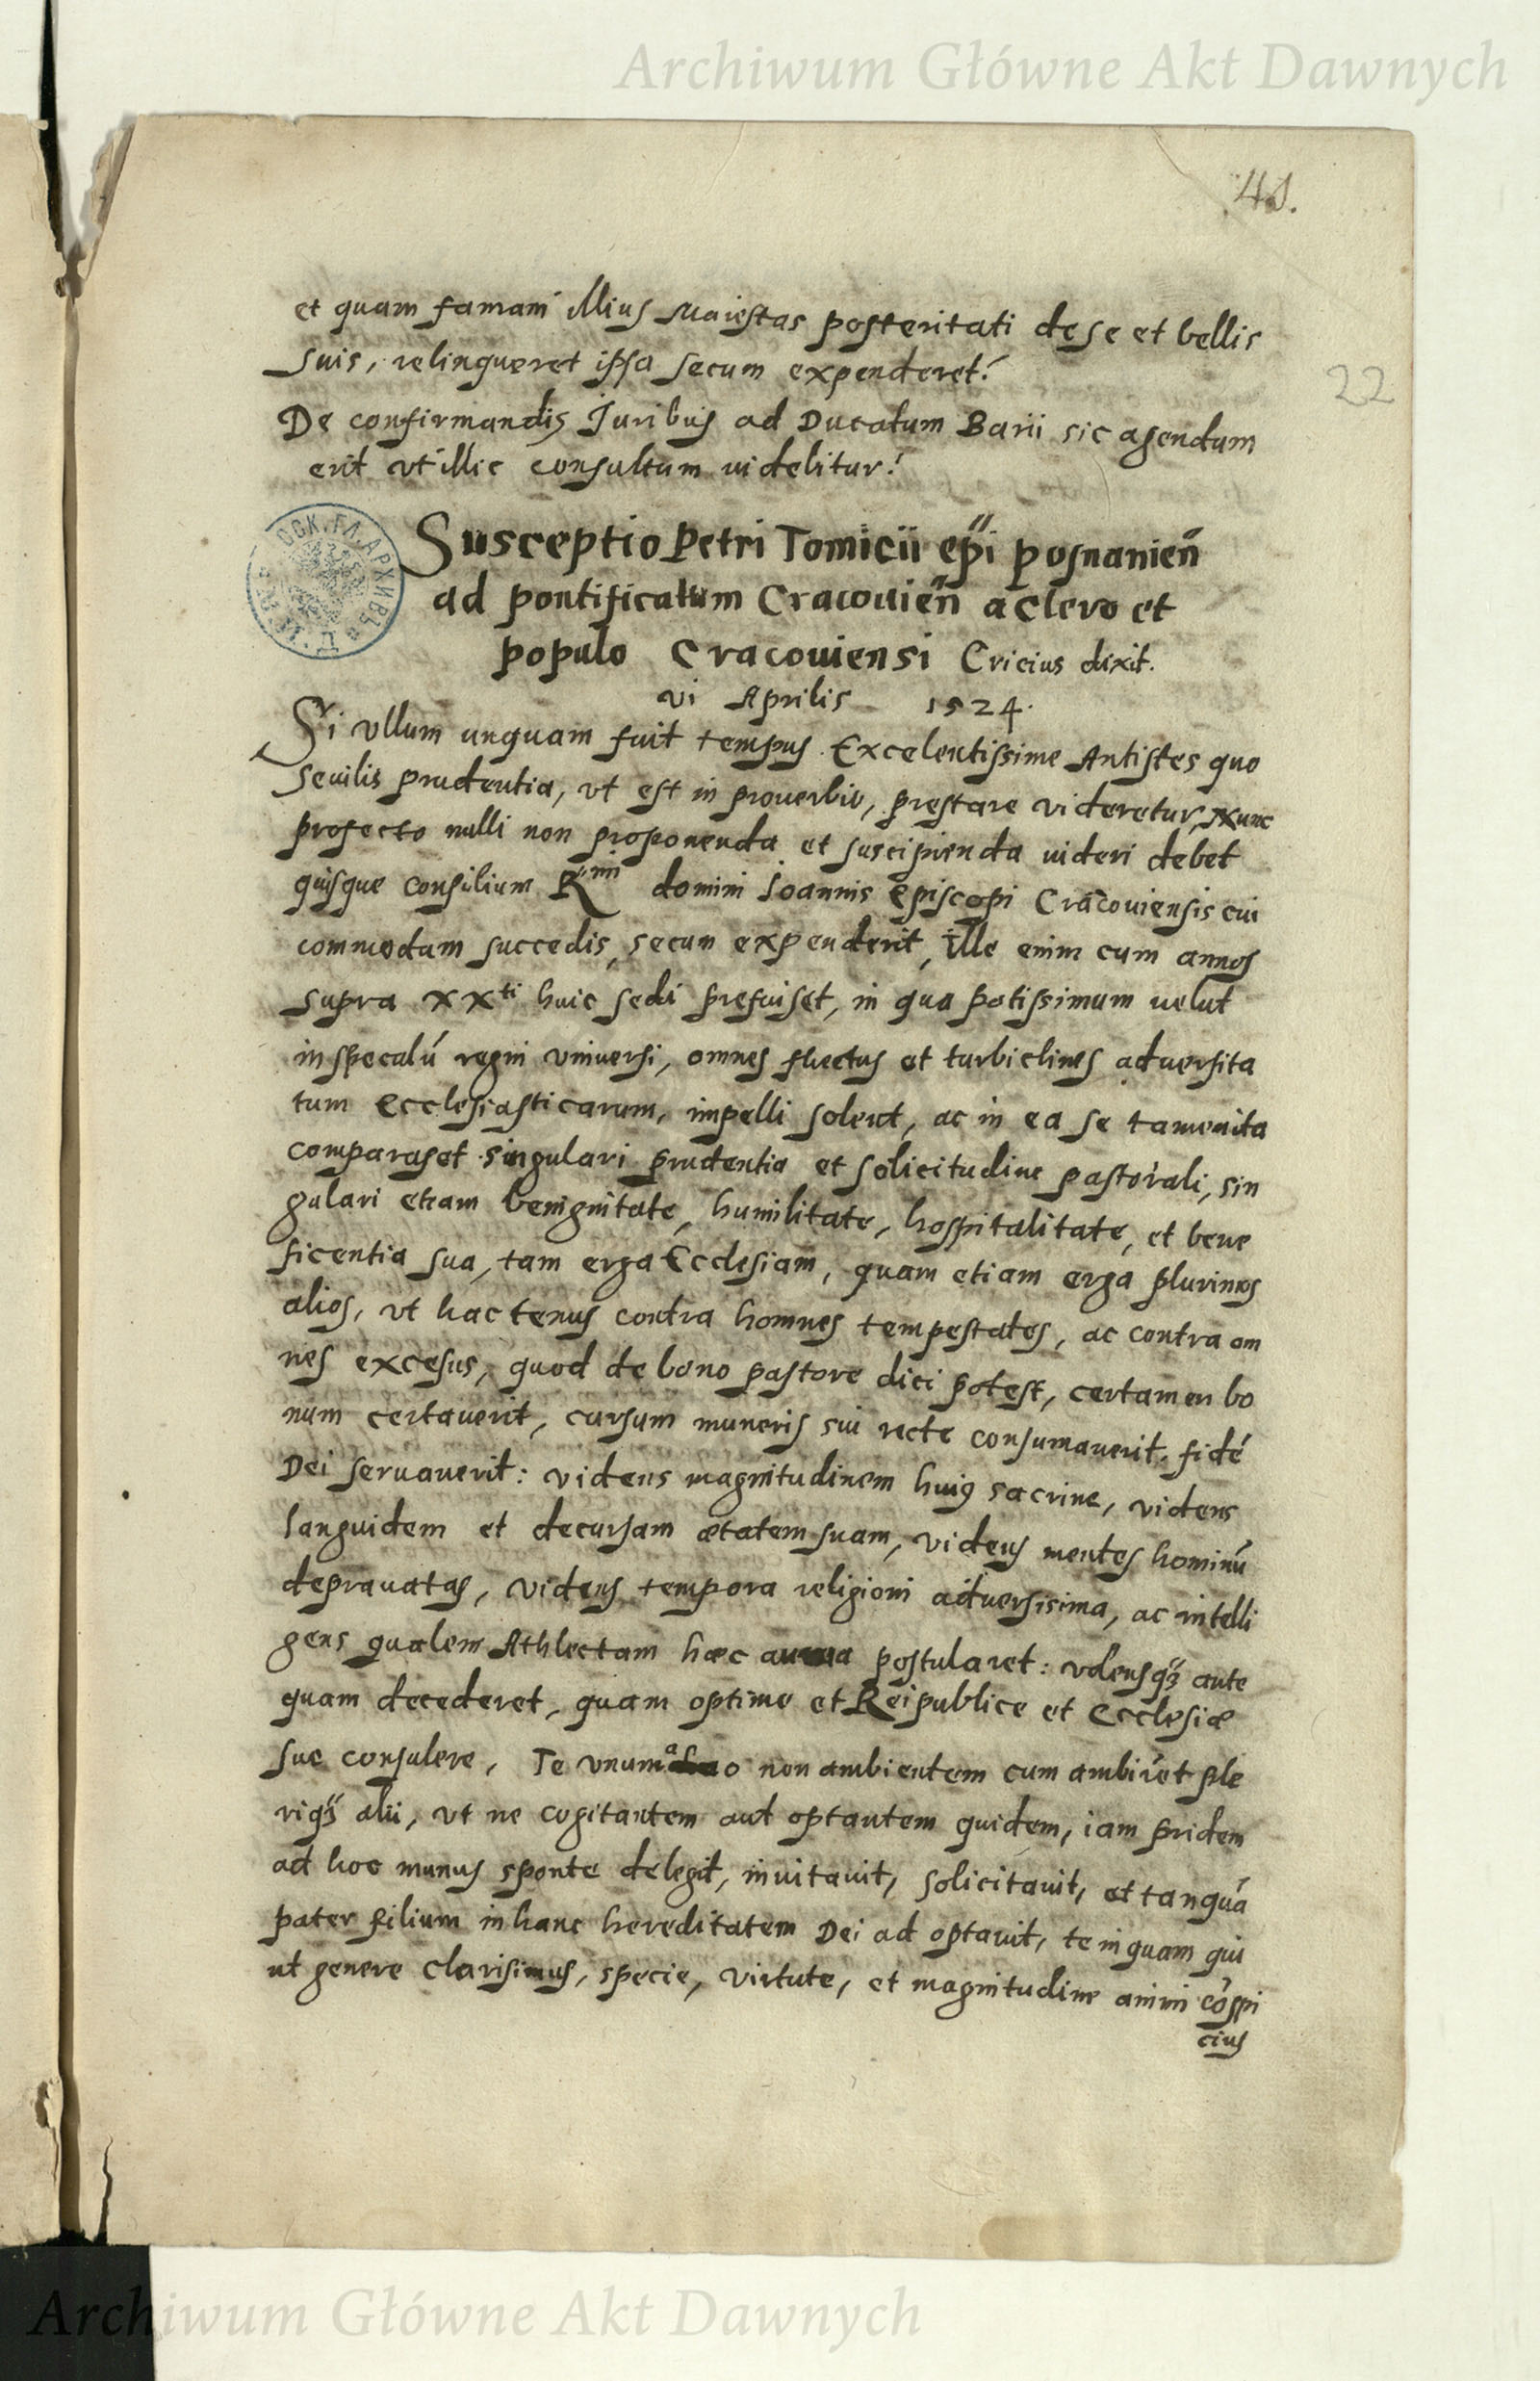 Archiwum Główne Akt Dawnych
41.
22
et quam famam illius Maiestas posteritati de se et bellis
suis, relinqueret ipsa secum expenderet.
De confirmandis Juribus ad Ducatum Barii sic agendum
erit vt illic consultum videbitur.
Susceptio Petri Tomicii epi posnanieñ
ad pontificatum Cracouieñ a clero et
populo Cracouiensi Cricius dixit.
vi Aprilis 1524.
Si vllum unquam fuit tempus Excelentissime Antistes quo
Senilis prudentia, vt est in prouerbio, prestare videretur, Nunc
profecto nulli non proponenda et suscipienda uideri debet
quisque consilium R domini Ioannis episcopi Cracouiensis cui
commodum succedis, secum expenderit, Ille enim cum annos
supra XXti huic sedi prefuiset, in qua potissimum velut
in speculū regni vniuersi, omnes fluctus et turbidines aduersita
tum Ecclesiasticarum, impelli solent, ac in ea se tamen ita
comparaset singulari prudentia et solicitudine pastorali, sin
gulari etiam benignitate, humilitate, hospitalitate, et bene
ficentia sua, tam erga Ecclesiam, quam etiam erga plurimos
alios, vt hactenus contra homnes tempestates, ac contra om
nes excesus, quod de bono pastore dici potest, certamen bo
num certauerit, cursum muneris sui recte consumauerit, fidē
Dei seruauerit: videns magnitudinem huius sacrine, videns
languidem et decursam ætatem suam, videns mentes hominū
deprauatas, videns tempora religioni aduersisima, ac intelli
gens qualem Athlectam hæc postularet: vdensq3 ante
quam decederet, quam optime et Reipublice et Ecclesiæ
sue consulere, Te vnum non ambientem cum ambiret ple
riq3 alii, vt ne cogitantem aut optantem quidem, iam pridem
ad hoc munus sponte delegit, inuitauit, solicitauit, et tanquā
pater filium in hanc hereditatem Dei ad optauit, te inquam qui
ut genere clarisimus, specie, virtute, et magnitudine animi cōspi
cius
Archiwum Główne Akt Dawnych